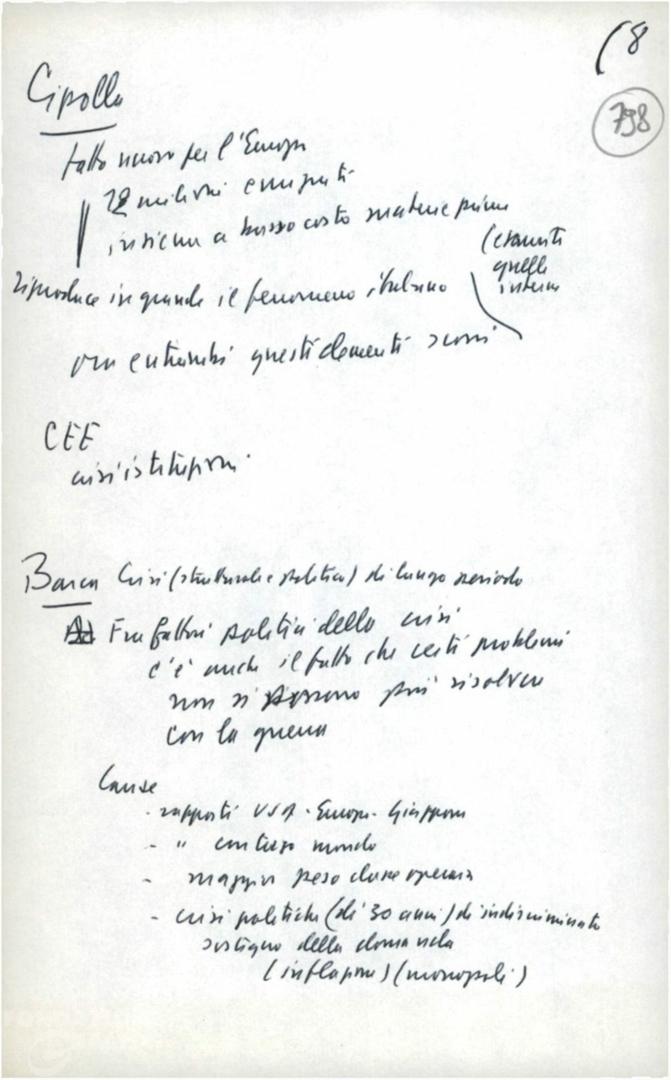 (8
798
Cipolla
fatto nuovo per l'Europa
12 milioni emigrati
insieme a basso costo materie prime
(
quelle
interne
riproduce in grande il fenomeno italiano
ora entrambi questi elementi scomp.
CEE
crisi istituzioni
Barca Crisi (strutturale e politica) di lungo periodo
Fra fattori politici della crisi
c'è anche il fatto che certi problemi
non si possono più risolvere
con la guerra
Cause
- rapporti USA - Europa - Giappone
- " con terzo mondo
- maggior peso classe operaia
- crisi politiche (di 30 anni) di indiscriminato
sostegno della domanda
(inflazione) (monopoli)